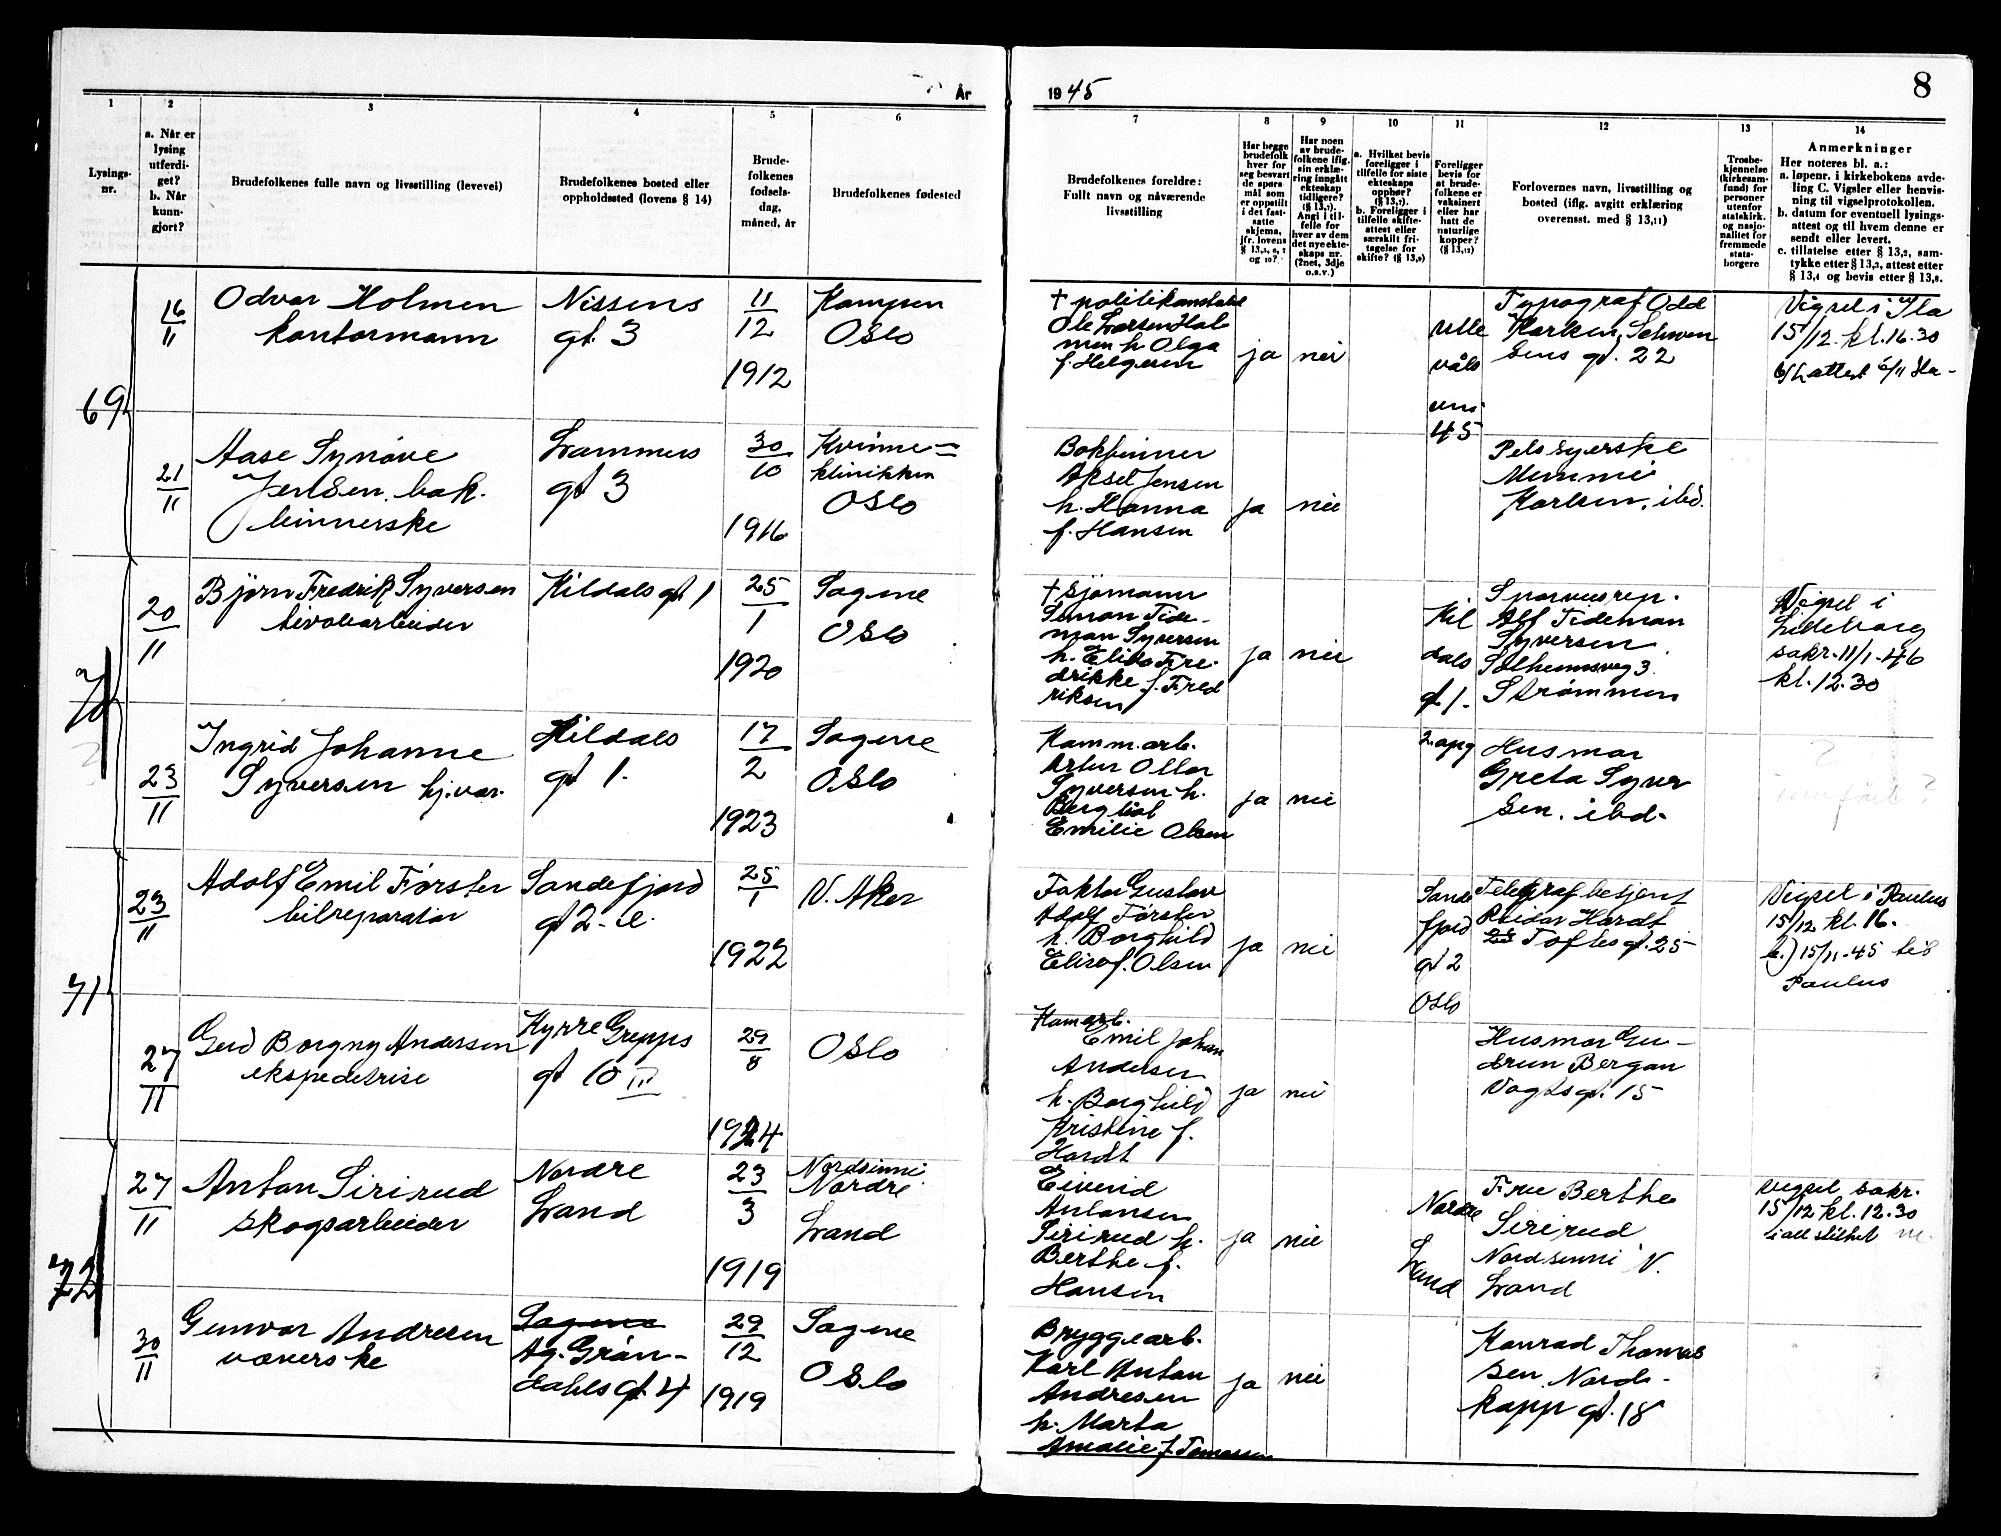 År
1945
8
1
2
3
4
5
6
7
8
9
10
11
12
13
14
Lysings-
nr.
a. Når er
lysing
utferdi-
get?
b. Når
kunn-
gjort?
Brudefolkenes fulle navn og livsstilling (levevei)
Brudefolkenes bosted eller
oppholdssted (lovens § 14)
Brude-
folkenes
fødsels-
dag,
måned, år
Brudefolkenes fødested
Brudefolkenes foreldre:
Fullt navn og nåværende
livsstilling
Har begge
brudefolk
hver for
seg besvart
de spørs-
mål som
er oppstilt
i det fast-
satte
skjema,
jfr. lovens
og 10?
Har noen
av brude-
folkene iflg.
sin erklæ-
ring inngått
ekteskap
tidligere?
(§ 13,7).
Angi i til-
felle for
hver av dem
det nye ekte-
skaps nr.
(2net, 3dje
o.s.v.)
a. Hvilket bevis
foreligger i
tilfelle for siste
ekteskaps
opphør?
(§ 13,7).
b. Foreligger i
tilfelle skifte-
attest eller
særskilt fri-
tagelse for
skifte? (§ 13,9)
Foreligger
bevis for
at brude-
folkene er
vaksinert
eller har
hatt de
naturlige
kopper?
(§ 13,12)
Forlovernes navn, livsstilling og
bosted (iflg. avgitt erklæring
overensst. med § 13,11)
Trosbe-
kjennelse
(kirkesam-
fund) for
personer
utenfor
statskirk.
og nasjo-
nalitet for
fremmede
stats-
borgere
Anmerkninger
Her noteres bl. a.:
a. løpenr. i kirkebokens avde-
ling C. Vigsler eller henvis-
ning til vigselprotokollen.
b. datum for eventuell lysings-
attest og til hvem denne er
sendt eller levert.
c. tillatelse etter § 13,2, sam-
tykke etter § 13,3, attest etter
§ 13,4 og bevis etter § 13,8.
69
16/11
Odvar Holmen
kontormann
Nissens
gt. 3
11/12
1912
Kampen
Oslo
† politikonstabel
Ole Larsen Hol
men h. Olga
f. Helgesen
ja
nei
Ulle
våls
45
Typograf Odd
Karlsen, Schwen
sens gt. 22
Vigsel i Ila
15/12. kl. 16.30
21/11
Aase Synøve
Jensen, bok-
binnerske
Lammers
gt 3
30/10
1916
Kvinne-
klinikken
Oslo
Bokbinner
Aksel Jensen
h. Hanna
f. Hansen
ja
nei
Pelssyerske
Mimmi
Karlsen, ibd.
70
20/11
Björn Fredrik Syversen
tivoliarbeider
Kildals gt 1
25/1
1920
Sagene
Oslo
† Sjømann
Simon Tide-
man Syversen
h. Elida Fre-
drikke f. Fred
riksen
ja
nei
Kil
dals
gt. 1.
Alf Tideman
Syversen
Solheimsveg 3.
Strømmen
Vigsel i
Lilleborg
sakr. 11/1-46
kl. 12.30
23/11
Ingrid Johanne
Syversen hj.vær.
Kildals
gt 1.
17/2
1923
Sagene
Oslo
Komm.arb.
Artur Ottar
Syversen h.
Bergliot
Emilie Olsen
ja
nei
2. opg
Husmor
Greta Syver
sen. ibd.
71
23/11
Adolf Emil Førster
bilreparatør
Sandefjord
gt 2.
25/1
1922
V. Aker
Faktor Gustav
Adolf Förster
h. Borghild
Elise f. Olsen
ja
nei
Sande
fjord
gt 2
Oslo
Telegrafbetjent
Reidar Hardt
Toftesgt. 25
Vigsel i Paulus
15/12 kl. 16.
b.) 15/11-45 til
Paulus
27/11
Gerd Borgny Andersen
ekspeditrise
Kyrre Grepps
gt 10 III
29/8
1924
Oslo
Kom arb.
Emil Johan
Andersen
h. Borghild
Kristine f.
Hardt
ja
nei
Husmor Gu-
drun Bergan
Vogtsgt. 15
72
27/11
Anton Sirirud
skogsarbeider
Nordre
Land
23/3
1919
Nordsinni
Nordre
Land
Eivind
Antonsen
Sirirud h.
Berthe f.
Hansen
ja
nei
Nordre
Land
Frue Berthe
Sirirud
Nordsinni N.
Land
Vigsel sakr.
15/12 kl. 12.30
i all stillhet
30/11
Gunvor Andresen
væverske
Sagene
Ag. Grön-
dahls gt. 4
29/12
1919
Sagene
Oslo
Bryggearb.
Karl Anton
Andresen
h. Marta
Amalie f. Tomassen
ja
nei
Konrad Thomas
sen Nord-
kapp gt. 18